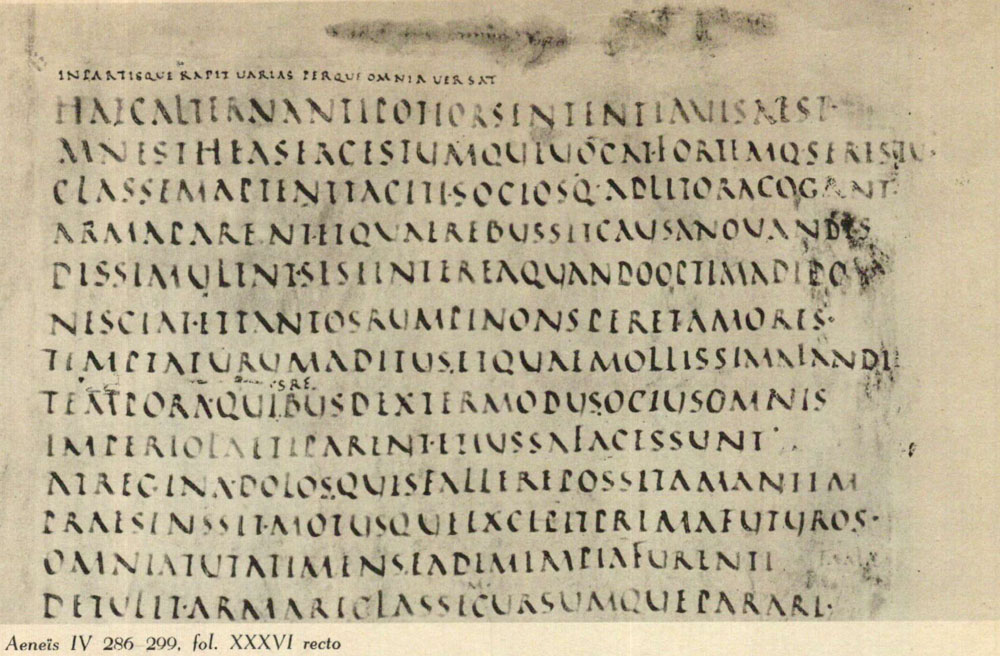 INPARTISQUE RAPIT UARIAS PERQUE OMNIA UERSAT
HAECALTERNANTIPOTIORSENTENTIAUISAEST·
MNESTHEASERGESTUMQUEUOCAT·FORTEMQ·SERESTUM·
CLASSEMAPTENTTACITI·SOCIOSQ·ADLITORACOGANT·
ARMAPARENT·ETQUAEREBUSSITCAUSANOUANDIS
DISSIMULENT·SESEINTEREAQUANDOOPTIMADIDO
NESCIAT·ETTANTOSRUMPINONSPERETAMORES·
TEMPTATURUMADITUS·ETQUAEMOLLISSIMAFANDI
S RE
TEMPORA·QUIBUSDEXTERMODUSOCIUSOMNIS
IMPERIOLAETIPARENT·ETIUSSAFACESSUNT
ATREGINA·DOLOSQUISFALLEREPOSSITAMANTEM
PRAESENSSIT·MOTUSQUEEXCEPITPRIMAFUTUROS·
OMNIATUTATIMENS·EADEMIMPIAFURENTI
DETULIT·ARMARICLASSECURSUMQUEPARARI·
Aeneïs IV 286–299, fol. XXXVI recto